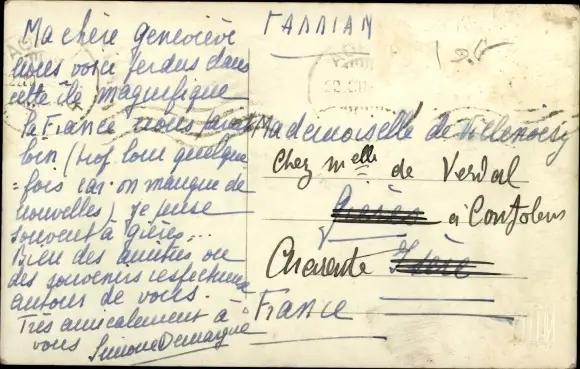 Ma chère geneviève
nous voici perdus dans
cette île magnifique
la France nous paraît
loin (trop loin quelque
= fois car on manque de
nouvelles) je pense
souvent à gières...
Bien des amitiés ou
des souvenirs respectueux
autour de vous.
Très amicalement à
vous Simone Demargne
ΓΑΛΛΙΑΝ
Mademoiselle de
Chez melle de Verdal
Gières à Confolens
Charente Isère
France